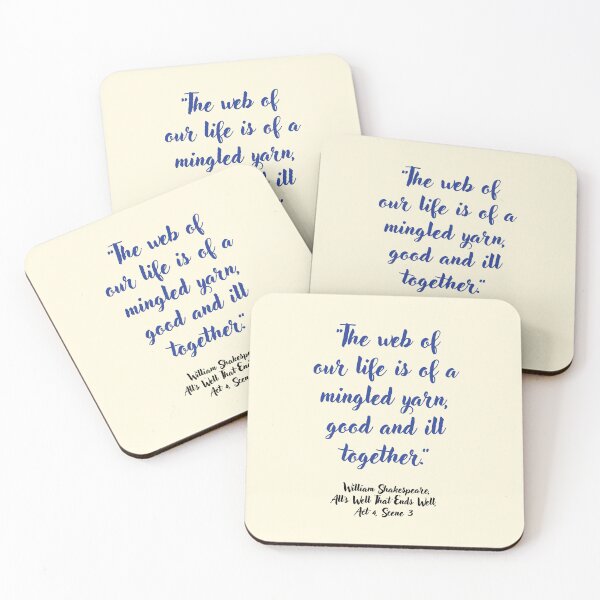 "The web of
our life is of a
mingled yarn,
ill
"The web of
our life is of a
mingled yarn,
good and ill
together."
"The web of
our life is of a
mingled yarn,
good and ill
together."
William
All's Well That
Act 4, Scene
"The web of
our life is of a
mingled yarn,
good and ill
together."
William Shakespeare,
All's Well That Ends Well,
Act 4, Scene 3